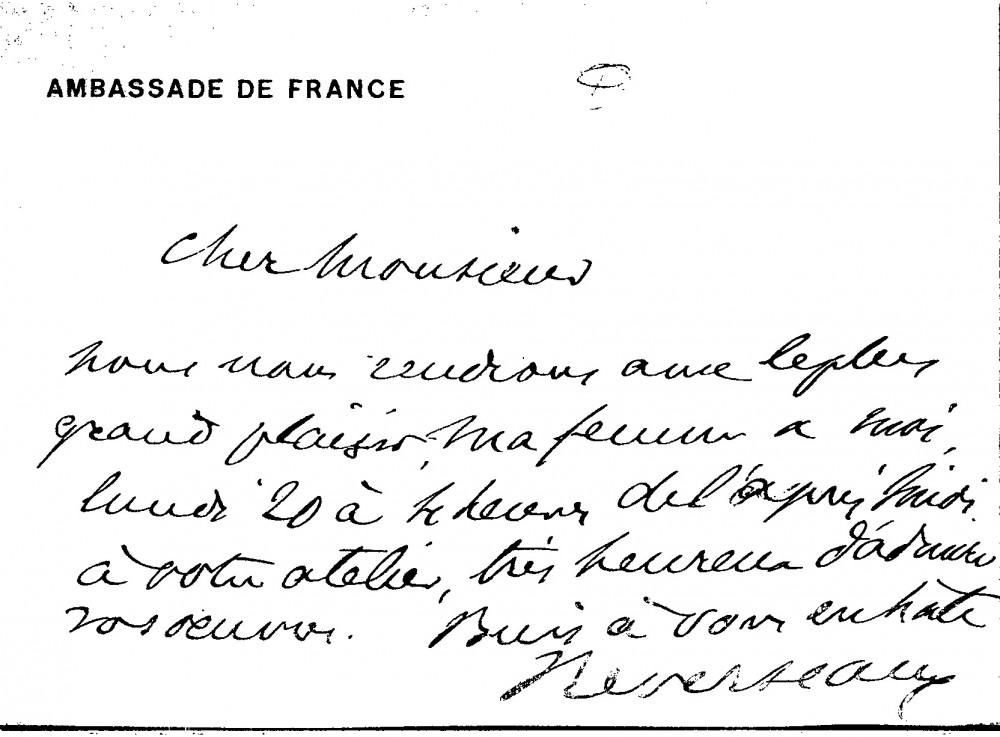 AMBASSADE DE FRANCE
Cher Monsieur
nous nous rendrons avec le plus
grand plaisir, ma femme & moi,
lundi 20 à 4 heures de l'après midi
à votre atelier, très heureux d'admirer
vos œuvres. Bien à vous en hâte
Reverseaux